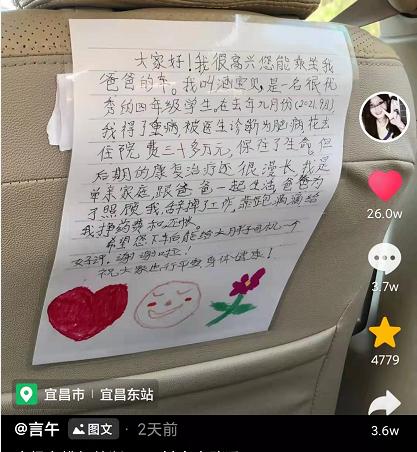 大家好！我很高兴您能乘坐我
爸爸的车。我叫涵宝贝，是一名很优
秀的四年级学生。在去年九月份(2021.9月)
我得了重病被医生诊断为脑病花去
住院费三十多万元，保住了生命。但
后期的康复治疗还很漫长，我是
单亲家庭跟爸爸一起生活，爸爸为
了照顾我，辞掉工作，来跑滴滴给
我挣药费和
希望您下车后能给大胡子司机一个
好评，谢谢啦！
祝大家出行平安身体健康！
26.0w
3.7w
4779
3.6w
宜昌市 | 宜昌东站
@言午 图文 · 2天前